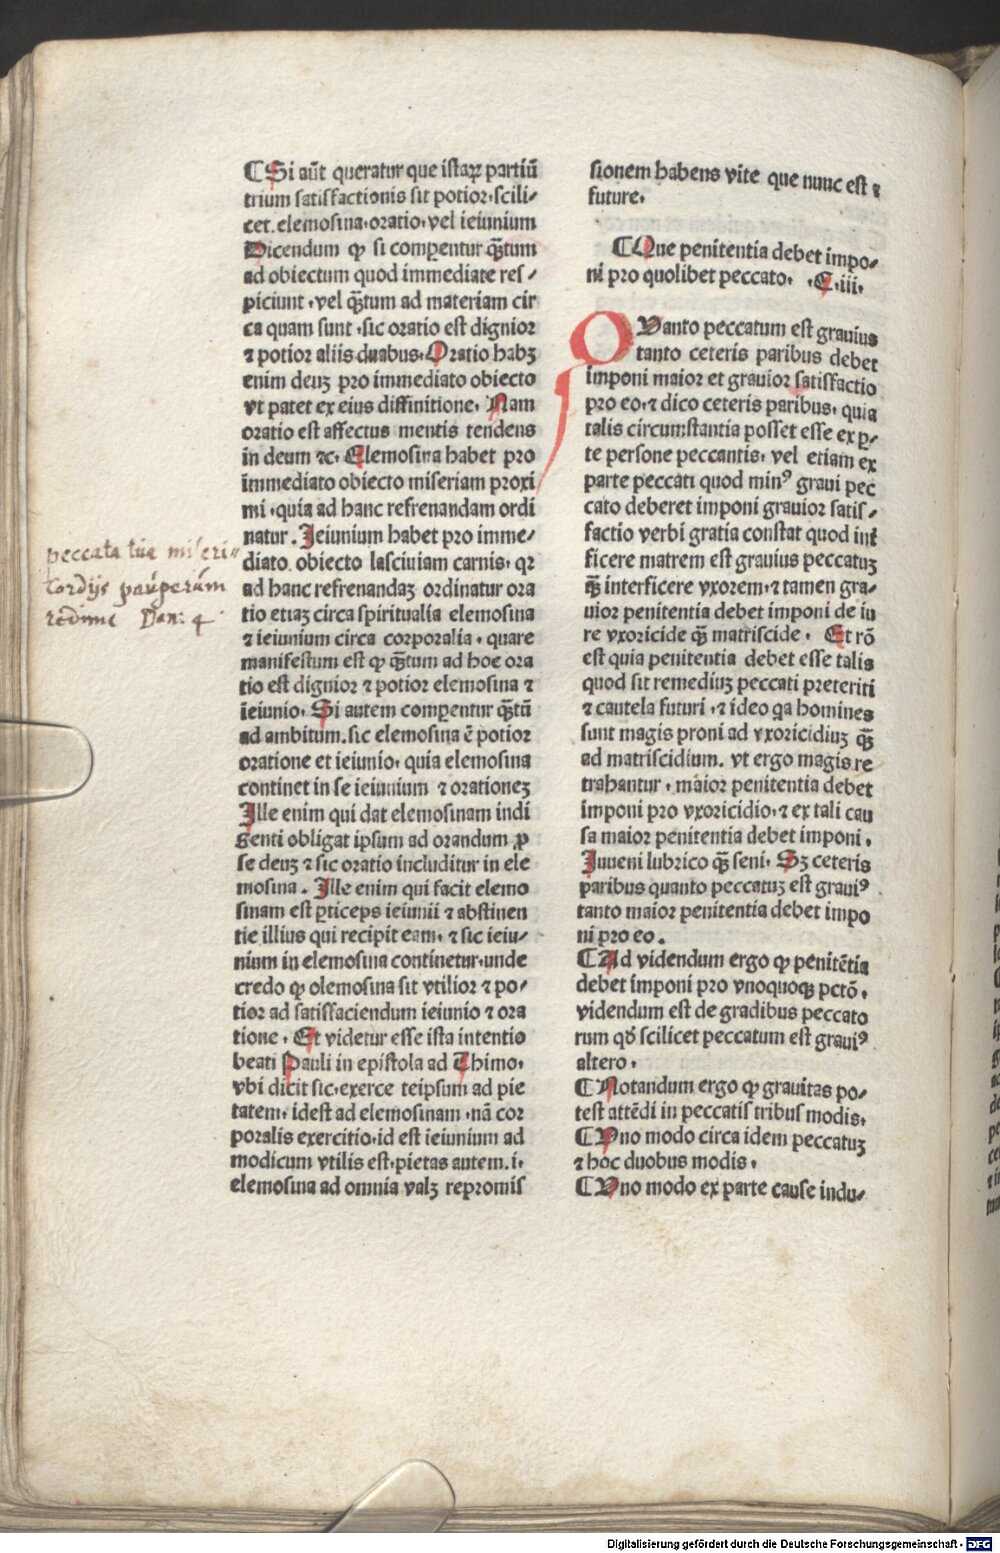 ¶ Si aūt queratur que istaꝝ partiū
trium satisfactionis sit potior·scili⸗
cet. elemosina·oratio·vel ieiunium
Dicendum ꝙ si comperentur q̄ꝫtum
ad obiectum quod immediate res⸗
piciunt·vel q̄ꝫtum ad materiam cir
ca quam sunt·sic oratio est dignior
⁊ potior aliis duabus·Oratio habꝫ
enim deuꝫ pro immediato obiecto
vt patet ex eius diffinitione. Nam
oratio est affectus mentis tendens
in deum ⁊c. Elemosina habet pro
immediato obiecto miseriam proxi
mi·quia ad hanc refrenandam ordi
natur. Ieiunium habet pro imme⸗
diato obiecto lasciuiam carnis·qr
ad hanc refrenandaꝫ ordinatur ora
tio etiaꝫ circa spiritualia elemosina
⁊ ieiunium circa corporalia·quare
manifestum est ꝙ q̄ꝫtum ad hoc ora
tio est dignior ⁊ potior elemosina ⁊
ieiunio. Si autem comperentur q̄ꝫtū
ad ambitum.sic elemosina ē potior
oratione et ieiunio·quia elemosina
continet in se ieiunium ⁊ orationeꝫ
Ille enim qui dat elemosinam indi
genti obligat ipsum ad orandum ꝓ
se deuꝫ ⁊ sic oratio includitur in ele
mosina. Ille enim qui facit elemo
sinam est ꝑticeps ieiunii ⁊ abstinen
tie illius qui recipit eam·⁊ sic ieiu⸗
nium in elemosina continetur·unde
credo ꝙ olemosina sit vtilior ⁊ po⸗
tior ad satisfaciendum ieiunio ⁊ ora
tione. Et videtur esse ista intentio
beati Pauli in epistola ad Thimo.
vbi dicit sic·exerce teipsum ad pie
tatem·idest ad elemosinam·nā cor
poralis exercitio·id est ieiunium ad
modicum vtilis est·pietas autem.i.
elemosina ad omnia valꝫ repromis
peccata tua miseri⸗
cordijs pauperum
redime Dan: 4
sionem habens vite que nunc est ⁊
future.
¶ Que penitentia debet impo⸗
ni pro quolibet peccato. .C.iii.
QVanto peccatum est grauius
tanto ceteris paribus debet
imponi maior et grauior satisfactio
pro eo·⁊ dico ceteris paribus·quia
talis circumstantia posset esse ex ꝑ⸗
te persone peccantis·vel etiam ex
parte peccati quod minꝰ graui pec
cato deberet imponi grauior satis⸗
factio verbi gratia constat quod int
ficere matrem est grauius peccatuꝫ
q̄ꝫ interficere vxorem·⁊ tamen gra⸗
uior penitentia debet imponi de iu
re vxoricide q̄ꝫ matriscide. Et rō
est quia penitentia debet esse talis
quod sit remediuꝫ peccati preteriti
⁊ cautela futuri·⁊ ideo qa homines
sunt magis proni ad vxoricidiuꝫ q̄ꝫ
ad matriscidium. vt ergo magis re
trahantur·maior penitentia debet
imponi pro vxoricidio·⁊ ex tali cau
sa maior penitentia debet imponi.
Iuueni lubrico q̄ꝫ seni. Sꝫ ceteris
paribus quanto peccatuꝫ est grauiꝰ
tanto maior penitentia debet impo
ni pro eo.
¶ Ad videndum ergo ꝙ penitētia
debet imponi pro vnoquoqꝫ pctō.
videndum est de gradibus peccato
rum qđ scilicet peccatum est grauiꝰ
altero.
¶ Notandum ergo ꝙ grauitas po⸗
test attēdi in peccatis tribus modis.
¶ Vno modo circa idem peccatuꝫ
⁊ hoc duobus modis.
¶ Vno modo ex parte cause indu⸗
Digitalisierung gefördert durch die Deutsche Forschungsgemeinschaft - DFG